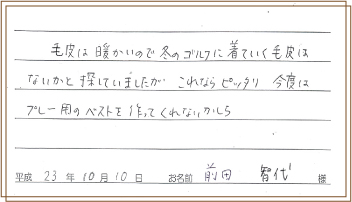 毛皮は暖かいので冬のゴルフに着ていく毛皮は
ないかと探していましたが これならピッタリ 今度は
プレー用のベストを作ってくれないかしら
平成 23 年 10 月 10 日 お名前 前田 智代 様